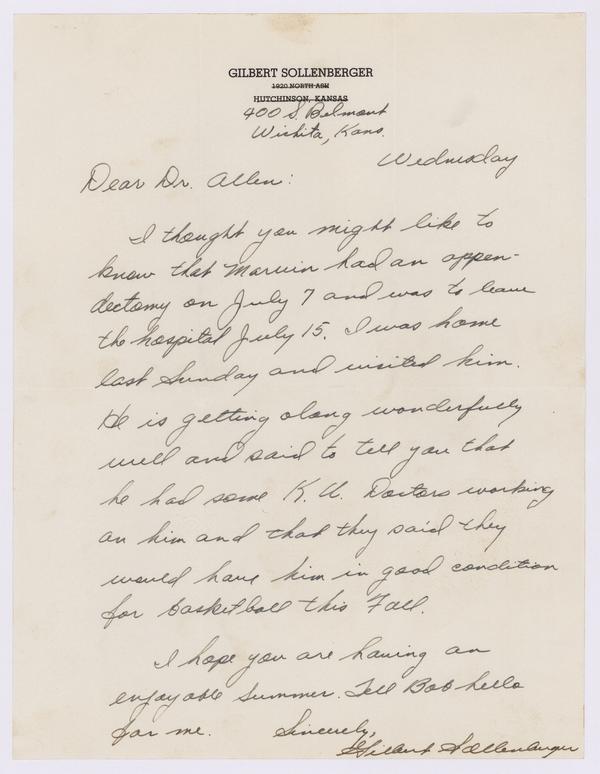 GILBERT SOLLENBERGER
1920 NORTH ASH
HUTCHINSON, KANSAS
400 S. Belmont
Wichita, Kans.
Wednesday
Dear Dr. Allen:
I thought you might like to
know that Marvin had an appen-
dectomy on July 7 and was to leave
the hospital July 15. I was home
last Sunday and visited him.
He is getting along wonderfully
well and said to tell you that
he had some K. U. Doctors working
on him and that they said they
would have him in good condition
for basketball this Fall.
I hope you are having an
enjoyable summer. Tell Bob hello
for me. Sincerely,
Gilbert Sollenberger